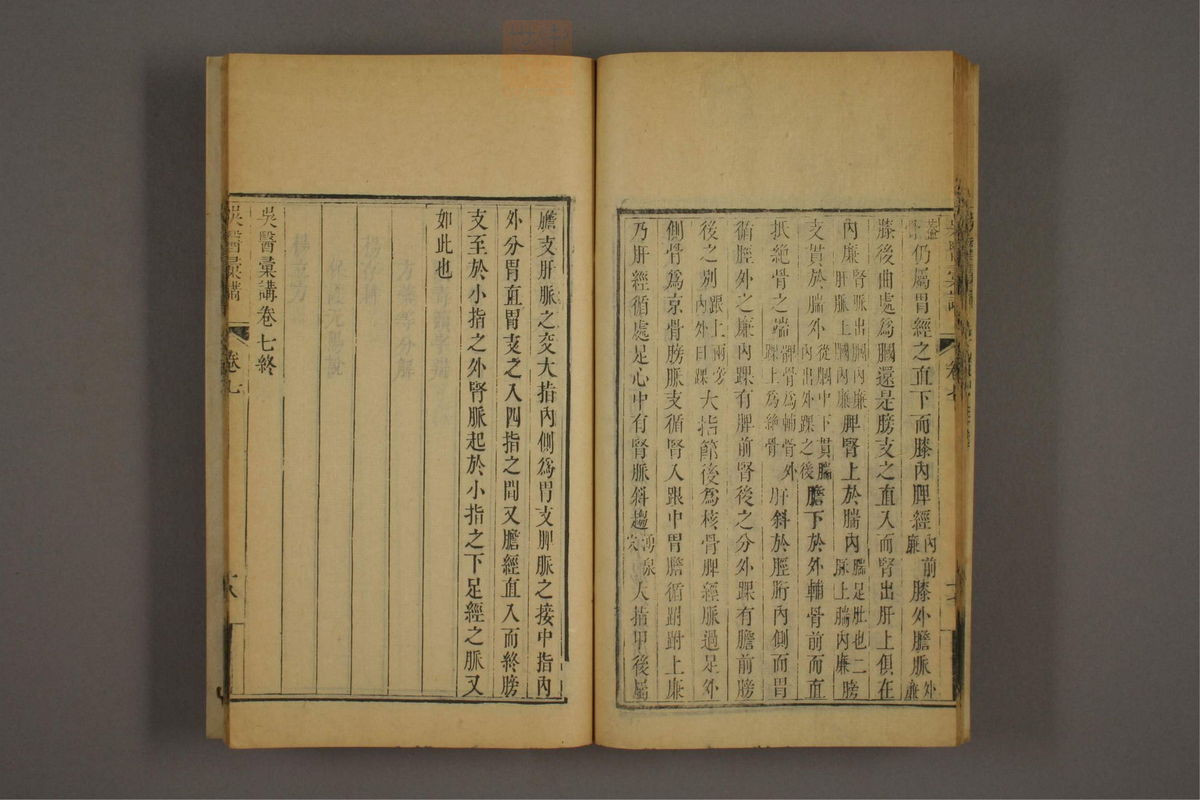 仍屬胃經之直下而膝內脾經內前廉膝外膽脈外廉
膝後曲處爲膕還是膀支之直入而腎出肝上俱在
內廉腎脈出膕內廉肝脈上膕內廉脾腎上於腨內腨足肚也二脈上腨內廉膀
支貫於腨外從膕中下貫腨內出外踝之後膽下於外輔骨前而直
抵絕骨之端䯒骨爲輔骨外踝上爲絕骨肝斜於脛䯒內側而胃
循脛外之廉內踝有脾前腎後之分外踝有膽前膀
後之別跟上兩旁內外曰踝大指節後爲核骨脾經脈過足外
側骨爲京骨膀脈支循腎入跟中胃膽循跗跗上廉
乃肝經循處足心中有腎脈斜趨湧泉穴大指甲後屬
膽支肝脈之交大指內側爲胃支脾脈之接中指內
外分胃直胃支之入四指之間又膽經直入而終膀
支至於小指之外腎脈起於小指之下足經之脈又
如此也
吳醫彙講卷七終
吳醫彙講
卷七